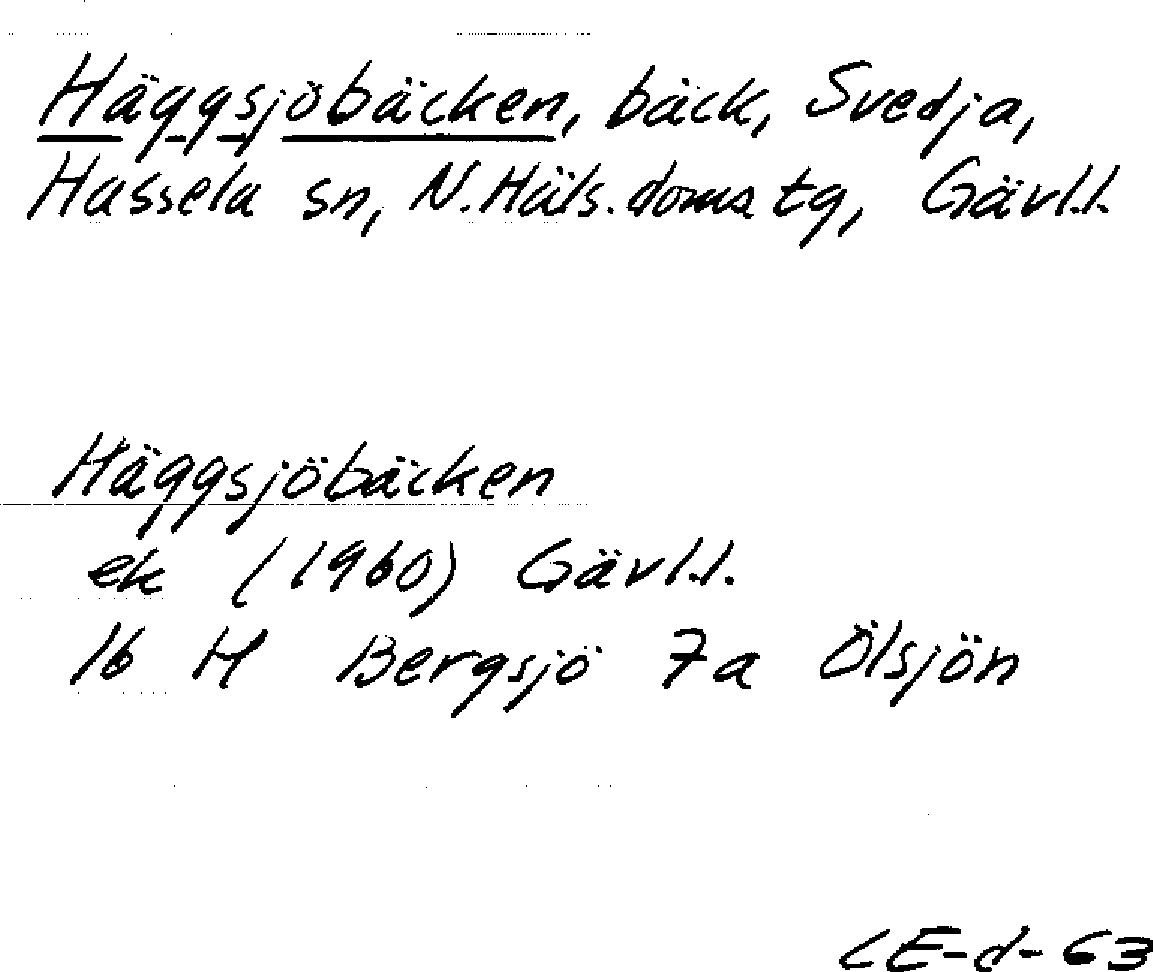 Häggsjöbäcken, bäck, Svedja,
Hassela sn, N.Häls.doms tg, Gävl.l.
Häggsjöbäcken
ek (1960) Gävl.l.
16 H Bergsjö 7a Ölsjön
CE-d-63